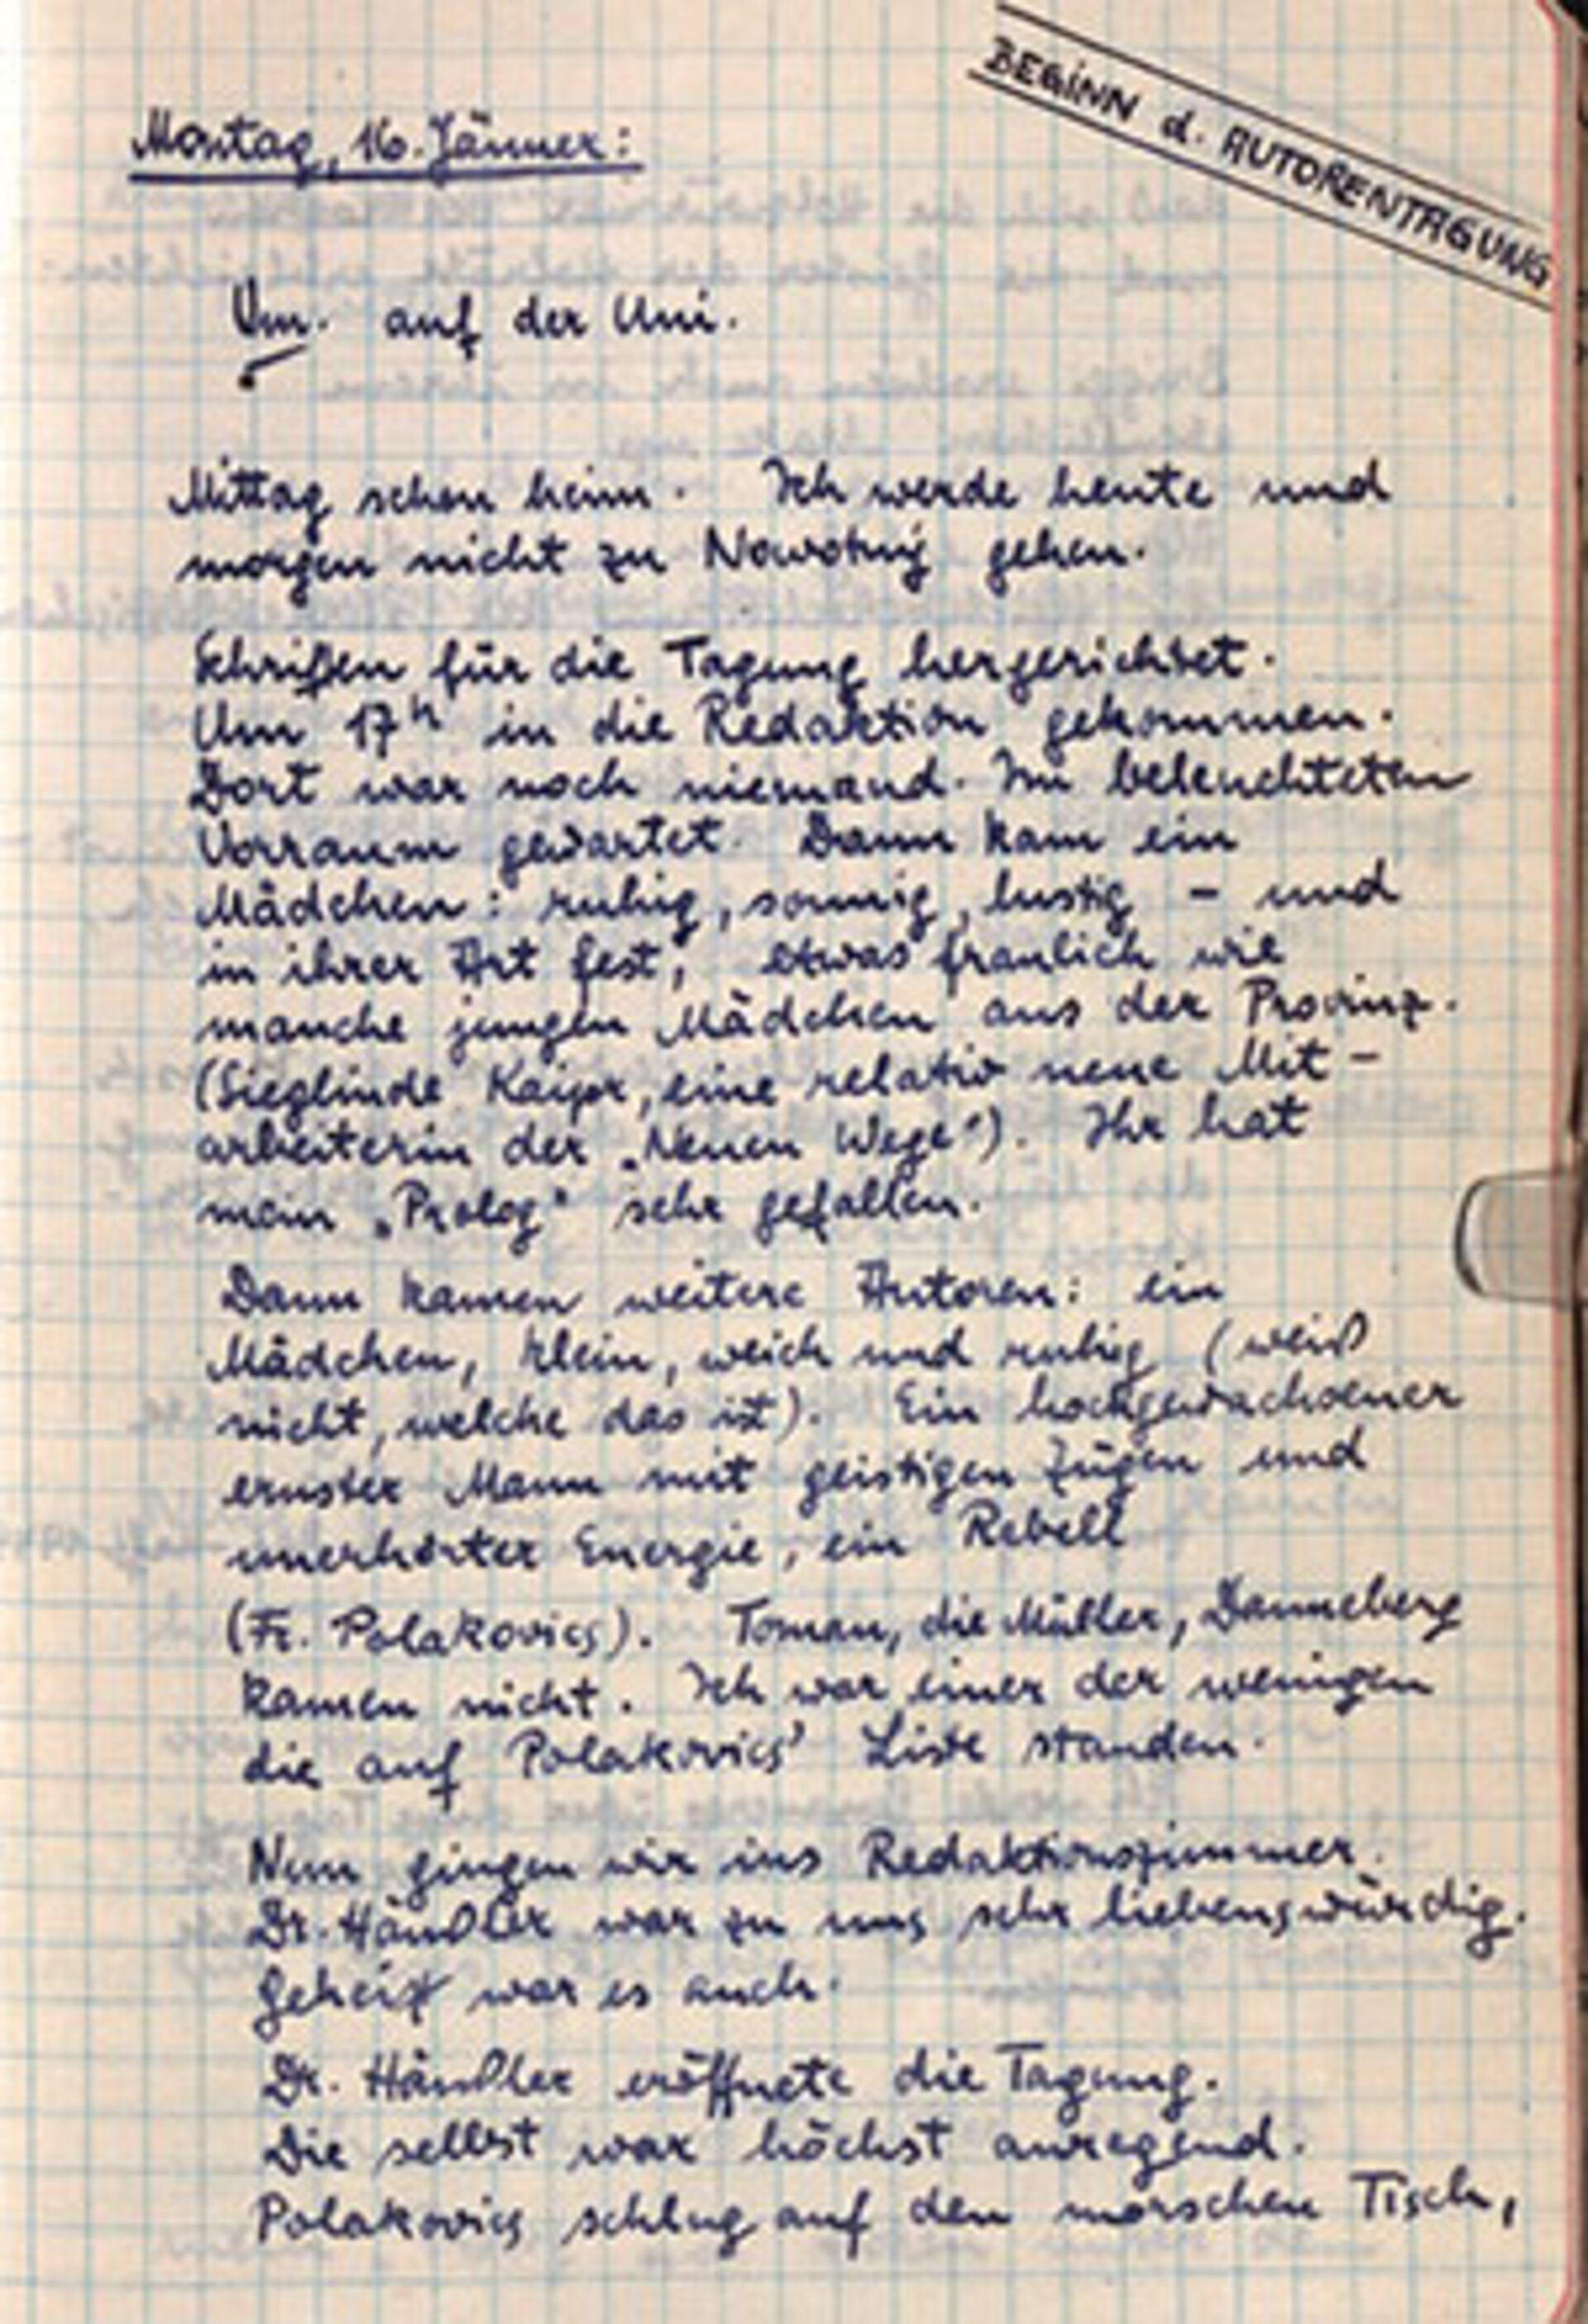 BEGINN d. AUTORENTAGUNG
Montag, 16. Jänner:
Vm. auf der Uni.
Mittag schon heim. Ich werde heute und
morgen nicht zu Nowotny gehen.
Schriften für die Tagung hergerichtet.
Um 17h in die Redaktion gekommen.
Dort war noch niemand. Im beleuchteten
Vorraum gewartet. Dann kam ein
Mädchen: ruhig, sonnig, lustig – und
in ihrer Art fest, etwas fraulich wie
manche jungen Mädchen aus der Provinz.
(Sieglinde Kaipr, eine relativ neue Mit-
arbeiterin der „Neuen Wege"). Ihr hat
mein „Prolog" sehr gefallen.
Dann kamen weitere Autoren: ein
Mädchen, klein, weich und ruhig (weiß
nicht, welche das ist). Ein hochgewachsener
ernster Mann mit geistigen Zügen und
unerhörter Energie, ein Rebell
(Fr. Polakovics). Toman, die Müller, Danneberg
kamen nicht. Ich war einer der wenigen
die auf Polakovics' Liste standen.
Nun gingen wir ins Redaktionszimmer.
Dr. Händler war zu uns sehr liebenswürdig.
Geheizt war es auch.
Dr. Händler eröffnete die Tagung.
Die selbst war höchst anregend.
Polakovics schlug auf den morschen Tisch,